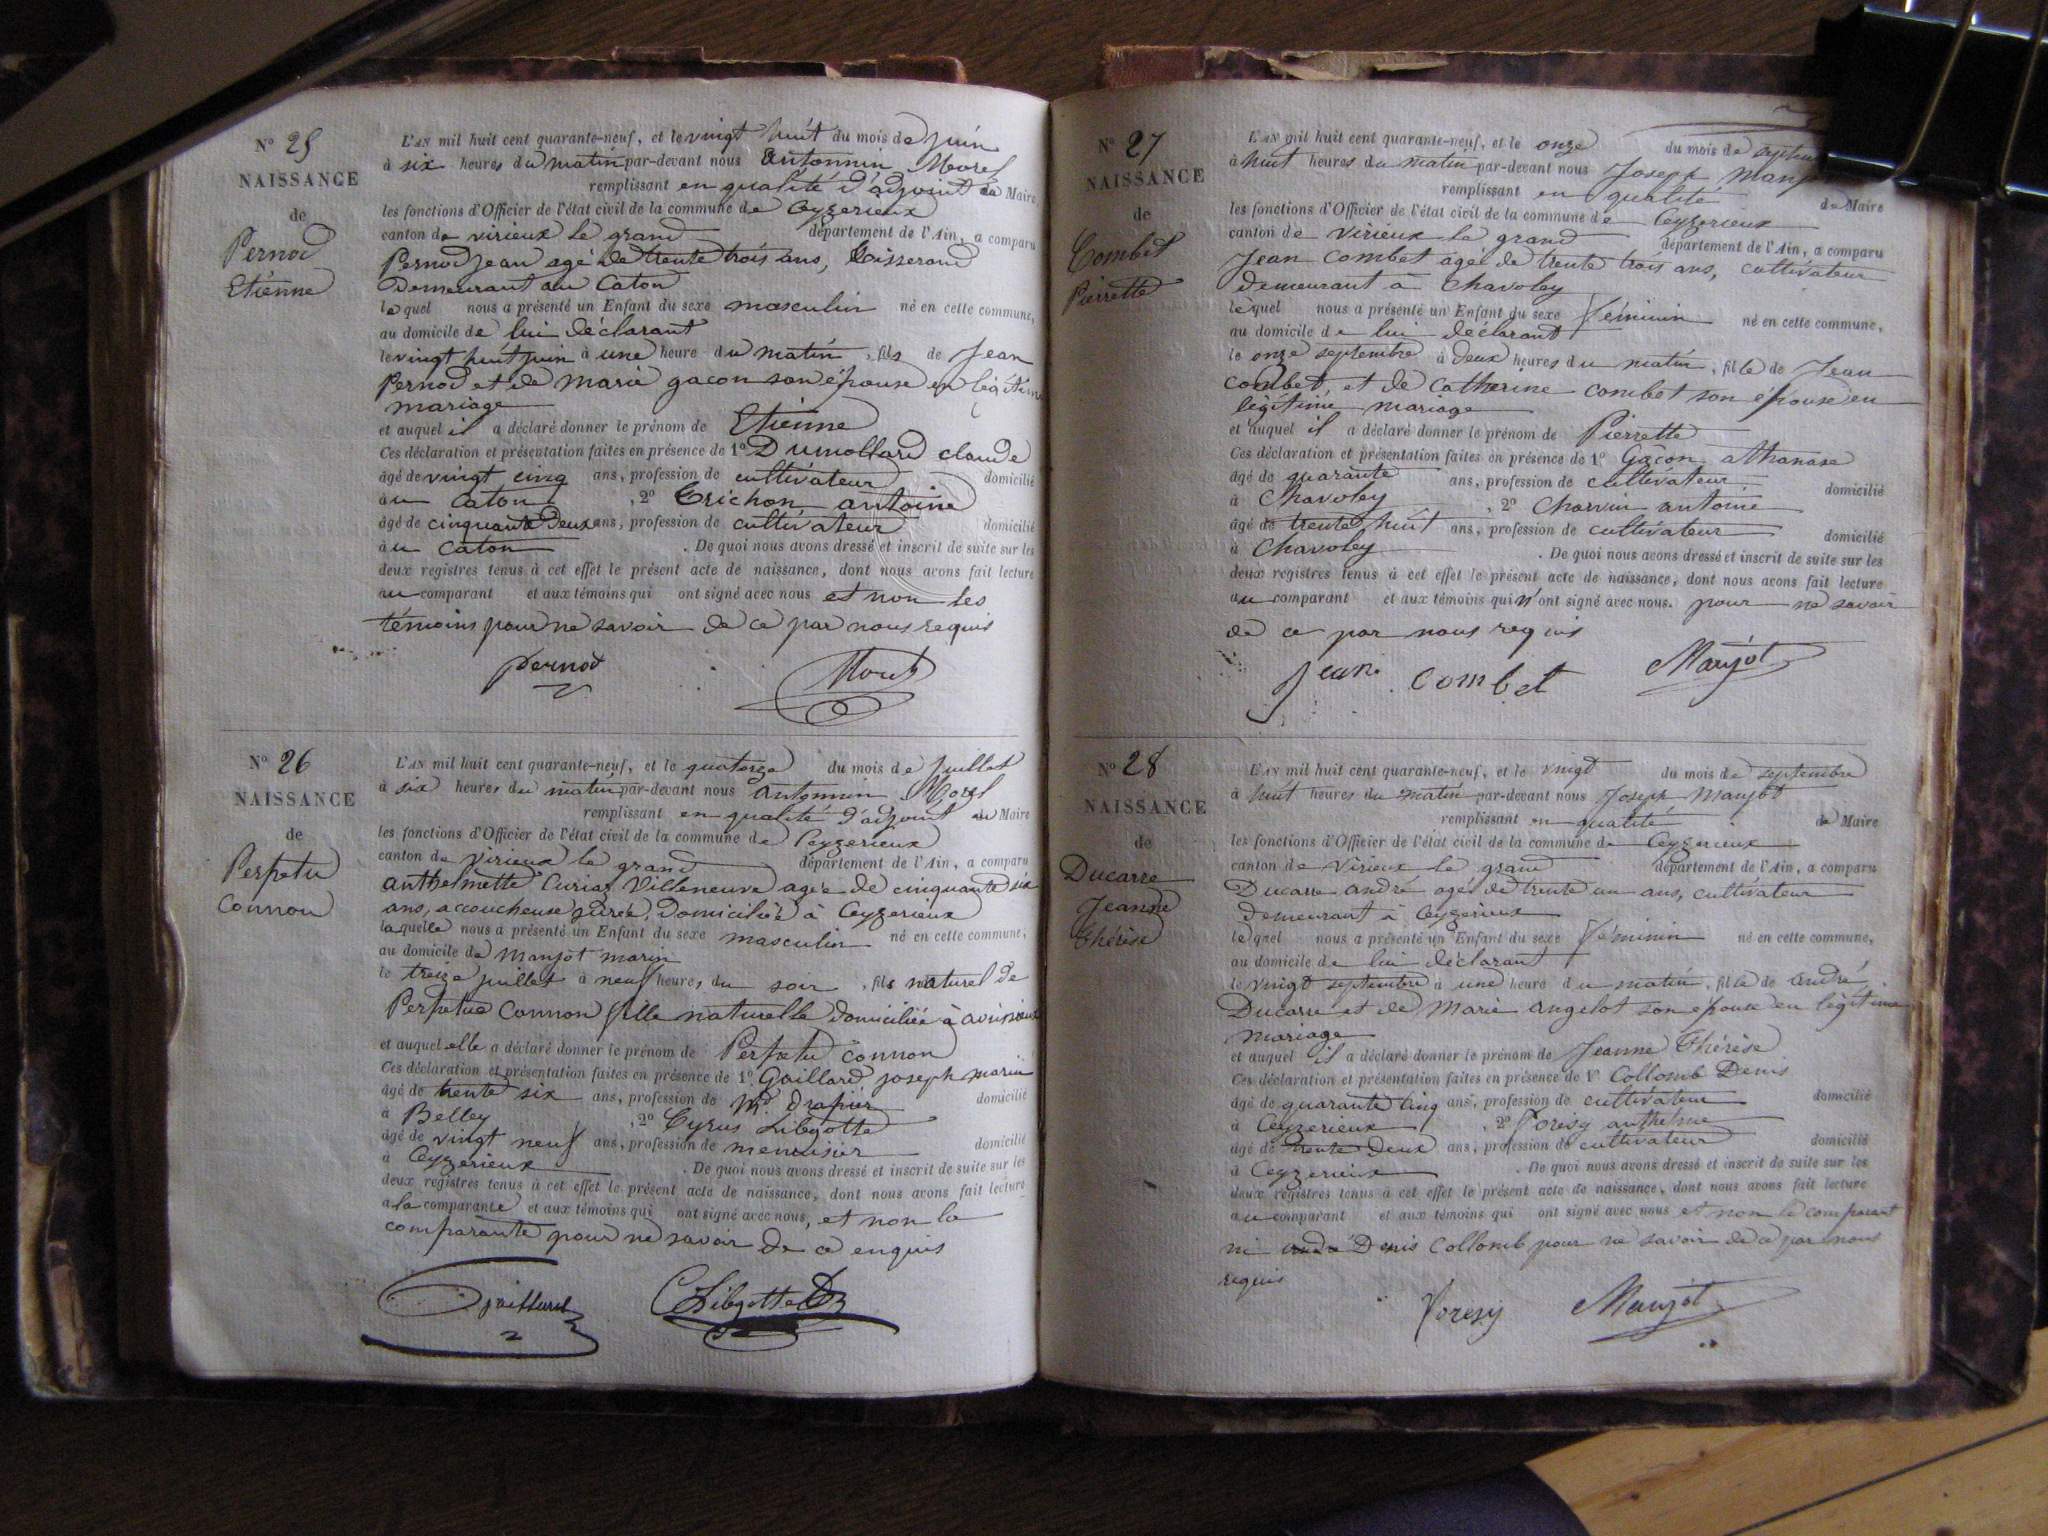 N° 25
NAISSANCE
de
Pernod
Etienne
L'AN mil huit cent quarante-neuf, et le vingt huit du mois de juin
à six heures du matin par-devant nous antonnin Morel
remplissant en qualité d'adjoint au Maire,
les fonctions d'Officier de l'état civil de la commune de Ceyzerieux
canton de virieux le grand département de l'Ain, a comparu
Pernod jean agé de trente trois ans, tisserand
demeurant au Caton
lequel nous a présenté un Enfant du sexe masculin né en cette commune,
au domicile de lui déclarant
le vingt huit juin à une heure du matin, fils de Jean
Pernod et de marie gacon son épouse en légitime
mariage
et auquel il a déclaré donner le prénom de Etienne
Ces déclaration et présentation faites en présence de 1° Dumollard claude
âgé de vingt cinq ans, profession de cultivateur domicilié
au Caton, 2° Crichon antoine
âgé de cinquante deux ans, profession de cultivateur domicilié
au Caton . De quoi nous avons dressé et inscrit de suite sur les
deux registres tenus à cet effet le présent acte de naissance, dont nous avons fait lecture
au comparant et aux témoins qui ont signé avec nous et non les
témoins pour ne savoir de ce par nous requis
Pernod Morel
N° 26
NAISSANCE
de
Perpetu
Connon
L'AN mil huit cent quarante-neuf, et le quatorze du mois de juillet
à six heures du matin par-devant nous antonnin Morel
remplissant en qualité d'adjoint au Maire
les fonctions d'Officier de l'état civil de la commune de Ceyzerieux
canton de virieux le grand département de l'Ain, a comparu
anthelmette Curiaz Villeneuve agée de cinquante six
ans, accoucheuse jurée, domiciliée à Ceyzerieux
laquelle nous a présenté un Enfant du sexe masculin né en cette commune,
au domicile de manjot marin
le treize juillet à neuf heures du soir, fils naturel de
Perpetue Connon fille naturelle domiciliée à
et auquel elle a déclaré donner le prénom de Perpetu Connon
Ces déclaration et présentation faites en présence de 1° Gaillard joseph marin
âgé de trente six ans, profession de Md. drapier domicilié
à Belley, 2° Cyrus Libgotte
âgé de vingt neuf ans, profession de menuisier domicilié
à Ceyzerieux . De quoi nous avons dressé et inscrit de suite sur les
deux registres tenus à cet effet le présent acte de naissance, dont nous avons fait lecture
a la comparante et aux témoins qui ont signé avec nous, et non la
comparante pour ne savoir de ce enquis
Gaillard C Libgotte
N° 27
NAISSANCE
de
Combet
Pierrette
L'AN mil huit cent quarante-neuf, et le onze du mois de
à huit heures du matin par-devant nous Joseph
remplissant en qualité de Maire
les fonctions d'Officier de l'état civil de la commune de Ceyzerieux
canton de Virieux le grand département de l'Ain, a comparu
Jean Combet agé de trente trois ans, cultivateur
demeurant à Chavoley
lequel nous a présenté un Enfant du sexe féminin né en cette commune,
au domicile de lui déclarant
le onze septembre à deux heures du matin, fille de Jean
Combet, et de Catherine combet son épouse en
légitime mariage
et auquel il a déclaré donner le prénom de Pierrette
Ces déclaration et présentation faites en présence de 1° Gacon athanase
âgé de quarante ans, profession de cultivateur domicilié
à Chavoley, 2° Charvin antoine
âgé de trente huit ans, profession de cultivateur domicilié
à Chavoley . De quoi nous avons dressé et inscrit de suite sur les
deux registres tenus à cet effet le présent acte de naissance, dont nous avons fait lecture
au comparant et aux témoins qui n'ont signé avec nous. pour ne savoir
de ce par nous requis
Jean Combet Manjot
N° 28
NAISSANCE
de
Ducarre
Jeanne
Thérèse
L'AN mil huit cent quarante-neuf, et le vingt du mois de septembre
à huit heures du matin par-devant nous Joseph Manjot
remplissant en qualité de Maire
les fonctions d'Officier de l'état civil de la commune de Ceyzerieux
canton de Virieux le grand département de l'Ain, a comparu
Ducarre andré agé de trente un ans, cultivateur
demeurant à Ceyzerieux
lequel nous a présenté un Enfant du sexe féminin né en cette commune,
au domicile de lui déclarant
le vingt septembre à une heure du matin, fille de andré
Ducarre et de Marie angelot son épouse en légitime
mariage
et auquel il a déclaré donner le prénom de Jeanne Thérèse
Ces déclaration et présentation faites en présence de 1° Collomb Denis
âgé de quarante cinq ans, profession de cultivateur domicilié
à Ceyzerieux, 2° Voresy anthelme
âgé de trente deux ans, profession de cultivateur domicilié
à Ceyzerieux . De quoi nous avons dressé et inscrit de suite sur les
deux registres tenus à cet effet le présent acte de naissance, dont nous avons fait lecture
au comparant et aux témoins qui ont signé avec nous et non le comparant
ni Denis Collomb pour ne savoir de ce par nous
requis
Voresy Manjot